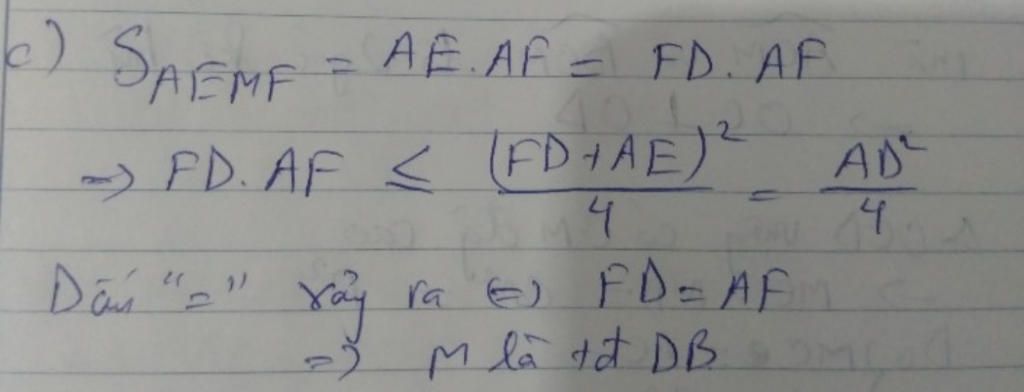 c) S_AEMF = AE.AF = FD.AF
=> FD.AF ≤ (FD+AE)²/4 = AD²/4
Dấu "=" xảy ra <=> FD=AF
=> M là tđ DB